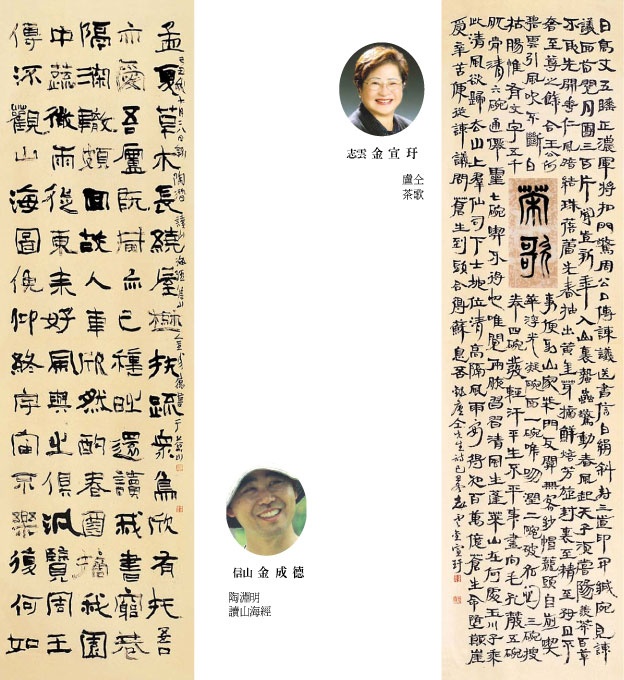 孟夏草木長繞屋樹扶疏衆鳥欣有託吾
亦愛吾廬既耕亦已種時還讀我書窮巷
隔深轍頗回故人車欣然酌春酒摘我園
中蔬微雨從東來好風與之俱汎覽周王
傳流觀山海圖俯仰終宇宙不樂復何如
志雲 金宣玗
盧仝
茶歌
信山 金成德
陶淵明
讀山海經
茶歌
日高丈五睡正濃軍將扣門驚周公口傳諫議送書信白絹斜封三道印開緘宛見諫
議面首閱月團三百片聞道新年入山裏蟄蟲驚動春風起天子須嘗陽羨茶百草
不敢先開花仁風暗結珠蓓蕾先春抽出黃金芽摘鮮焙芳旋封裹至精至好且不
奢至尊之餘合王公何事便到山家柴門反關無俗客紗帽籠頭自煎喫
碧雲引風吹不斷白華浮光凝碗面一碗喉吻潤二碗破孤悶三碗搜
枯腸惟有文字五千卷四碗發輕汗平生不平事盡向毛孔散五碗
肌骨清六碗通仙靈七碗喫不得也唯覺兩腋習習清風生蓬萊山在何處玉川子乘
此清風欲歸去山上群仙司下士地位清高隔風雨安得知百萬億蒼生命墮顚崖
受辛苦便從諫議問蒼生到頭合得蘇息否